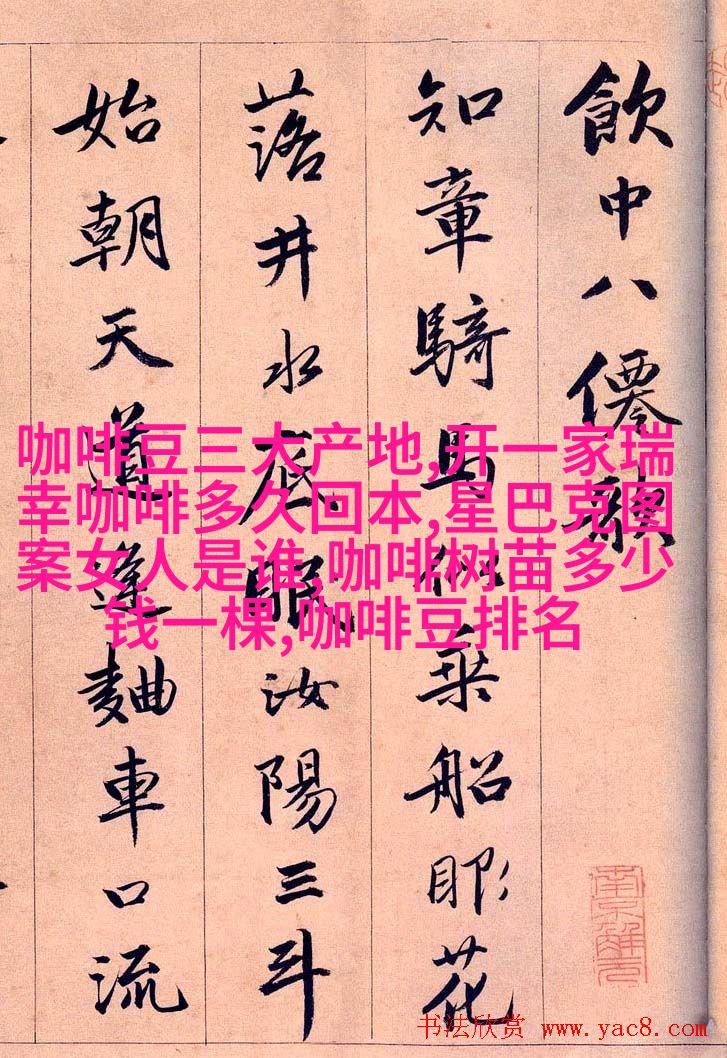 飲中八僊歌
知章騎馬似乘船眼花
落井水底眠汝陽三斗
始朝天道逢麯車口流
咖啡豆三大产地,开一家瑞
幸咖啡多久回本,星巴克图
案女人是谁,咖啡树苗多少
钱一棵,咖啡豆排名
南京解元
书法欣赏 www.yac8.com